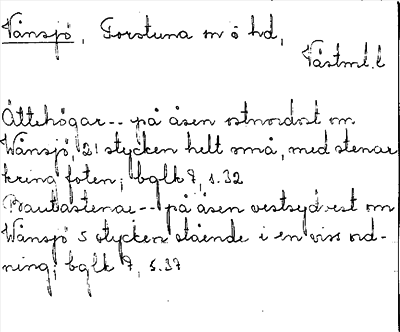 Vånsjö, Torstuna m ö hd,
Västml. l
Ättehögar-- på åsen ostnordost om
Wånsjö, 21 stycken helt små, med stenar
kring foten; bglk 7, s. 32
Bautastenar-- på åsen vestsydvest om
Wånsjö 5 stycken stående i en viss ord-
ning; bglk 7, s. 37